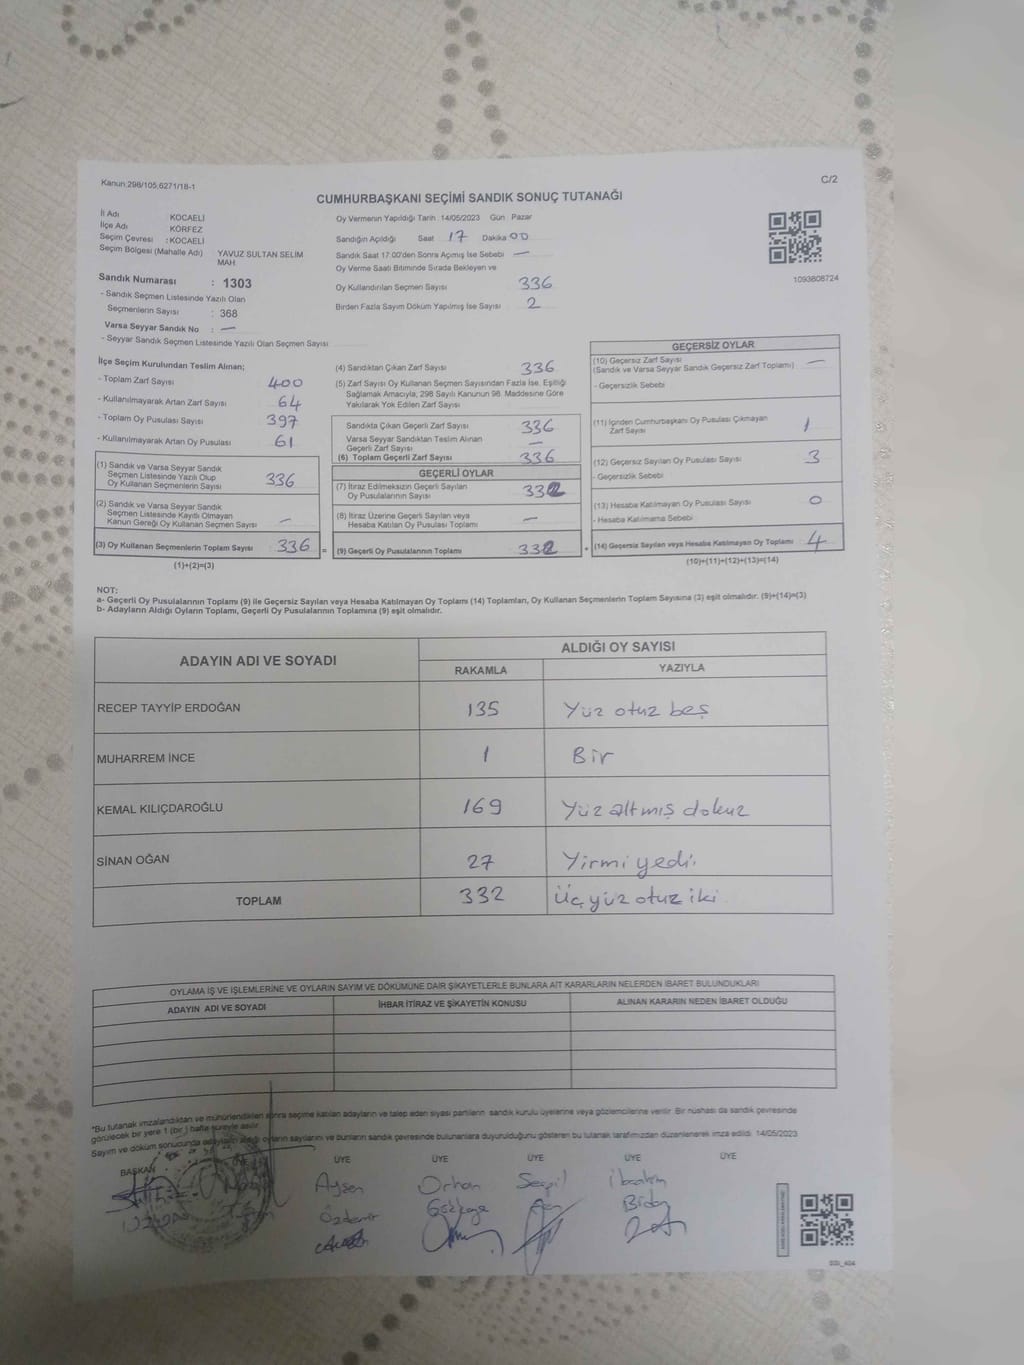 Kanun:298/105,6271/18-1
C/2
CUMHURBAŞKANI SEÇİMİ SANDIK SONUÇ TUTANAĞI
İl Adı KOCAELİ
İlçe Adı KÖRFEZ
Seçim Çevresi : KOCAELİ
Seçim Bölgesi (Mahalle Adı) YAVUZ SULTAN SELİM MAH.
Sandık Numarası : 1303
- Sandık Seçmen Listesinde Yazılı Olan
Seçmenlerin Sayısı : 368
Varsa Seyyar Sandık No : —
- Seyyar Sandık Seçmen Listesinde Yazılı Olan Seçmen Sayısı
Oy Vermenin Yapıldığı Tarih :14/05/2023 Gün : Pazar
Sandığın Açıldığı Saat 17 Dakika 00
Sandık Saat 17:00'den Sonra Açmış İse Sebebi —
Oy Verme Saati Bitiminde Sırada Bekleyen ve
Oy Kullandırılan Seçmen Sayısı 336
Birden Fazla Sayım Döküm Yapılmış İse Sayısı 2
1093808724
İlçe Seçim Kurulundan Teslim Alınan;
- Toplam Zarf Sayısı 400
- Kullanılmayarak Artan Zarf Sayısı 64
- Toplam Oy Pusulası Sayısı 397
- Kullanılmayarak Artan Oy Pusulası 61
(1) Sandık ve Varsa Seyyar Sandık
Seçmen Listesinde Yazılı Olup
Oy Kullanan Seçmenlerin Sayısı 336
(2) Sandık ve Varsa Seyyar Sandık
Seçmen Listesinde Kayıtlı Olmayan
Kanun Gereği Oy Kullanan Seçmen Sayısı —
(3) Oy Kullanan Seçmenlerin Toplam Sayısı 336 =
(1)+(2)=(3)
(4) Sandıktan Çıkan Zarf Sayısı 336
(5) Zarf Sayısı Oy Kullanan Seçmen Sayısından Fazla İse, Eşitliği
Sağlamak Amacıyla, 298 Sayılı Kanunun 98. Maddesine Göre
Yakılarak Yok Edilen Zarf Sayısı
Sandıkta Çıkan Geçerli Zarf Sayısı 336
Varsa Seyyar Sandıktan Teslim Alınan
Geçerli Zarf Sayısı —
(6) Toplam Geçerli Zarf Sayısı 336
GEÇERLİ OYLAR
(7) İtiraz Edilmeksizin Geçerli Sayılan
Oy Pusulalarının Sayısı 332
(8) İtiraz Üzerine Geçerli Sayılan veya
Hesaba Katılan Oy Pusulası Toplamı —
(9) Geçerli Oy Pusulalarının Toplamı 332 +
GEÇERSİZ OYLAR
(10) Geçersiz Zarf Sayısı
(Sandık ve Varsa Seyyar Sandık Geçersiz Zarf Toplamı) —
- Geçersizlik Sebebi
(11) İçinden Cumhurbaşkanı Oy Pusulası Çıkmayan
Zarf Sayısı 1
(12) Geçersiz Sayılan Oy Pusulası Sayısı 3
- Geçersizlik Sebebi
(13) Hesaba Katılmayan Oy Pusulası Sayısı 0
- Hesaba Katılmama Sebebi
(14) Geçersiz Sayılan veya Hesaba Katılmayan Oy Toplamı 4
(10)+(11)+(12)+(13)=(14)
NOT:
a- Geçerli Oy Pusulalarının Toplamı (9) ile Geçersiz Sayılan veya Hesaba Katılmayan Oy Toplamı (14) Toplamları, Oy Kullanan Seçmenlerin Toplam Sayısına (3) eşit olmalıdır. (9)+(14)=(3)
b- Adayların Aldığı Oyların Toplamı, Geçerli Oy Pusulalarının Toplamına (9) eşit olmalıdır.
ADAYIN ADI VE SOYADI ALDIĞI OY SAYISI
RAKAMLA YAZIYLA
RECEP TAYYİP ERDOĞAN 135 Yüz otuz beş
MUHARREM İNCE 1 Bir
KEMAL KILIÇDAROĞLU 169 Yüz altmış dokuz
SİNAN OĞAN 27 Yirmi yedi
TOPLAM 332 Üç yüz otuz iki
OYLAMA İŞ VE İŞLEMLERİNE VE OYLARIN SAYIM VE DÖKÜMÜNE DAİR ŞİKAYETLERLE BUNLARA AİT KARARLARIN NELERDEN İBARET BULUNDUKLARI
ADAYIN ADI VE SOYADI İHBAR İTİRAZ VE ŞİKAYETİN KONUSU ALINAN KARARIN NEDEN İBARET OLDUĞU
*Bu tutanak imzalandıktan ve mühürlendikten sonra seçime katılan adayların ve talep eden siyasi partilerin sandık kurulu üyelerine veya gözlemcilerine verilir. Bir nüshası da sandık çevresinde
görülecek bir yere 1 (bir) hafta süreyle asılır.
Sayım ve döküm sonucunda adayların aldığı oyların sayılarını ve bunların sandık çevresinde bulunanlara duyurulduğunu gösteren bu tutanak tarafımızdan düzenlenerek imza edildi. 14/05/2023
BAŞKAN ÜYE ÜYE ÜYE ÜYE ÜYE
Aysen Orhan Seçil İbrahim
Özdemir Gökkaya